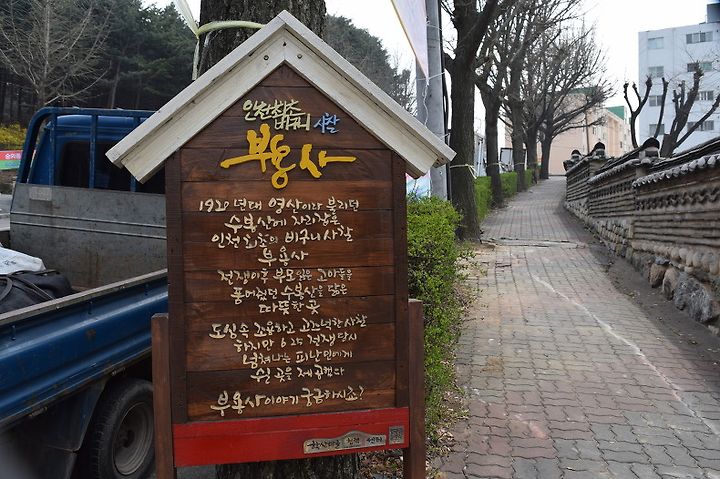 인천최초
비구니 사찰
부용사
1920년대 영사이라 불리던
수봉산에 자리잡은
인천 최초의 비구니 사찰
부용사
전쟁이후 부모잃은 고아들을
품어줬던 수봉산을 닮은
따뜻한 곳
도심속 조용하고 고즈넉한 사찰
하지만 6·25 전쟁당시
넘쳐나는 피난민에게
쉴 곳을 제공했다
부용사이야기 궁금하시죠?